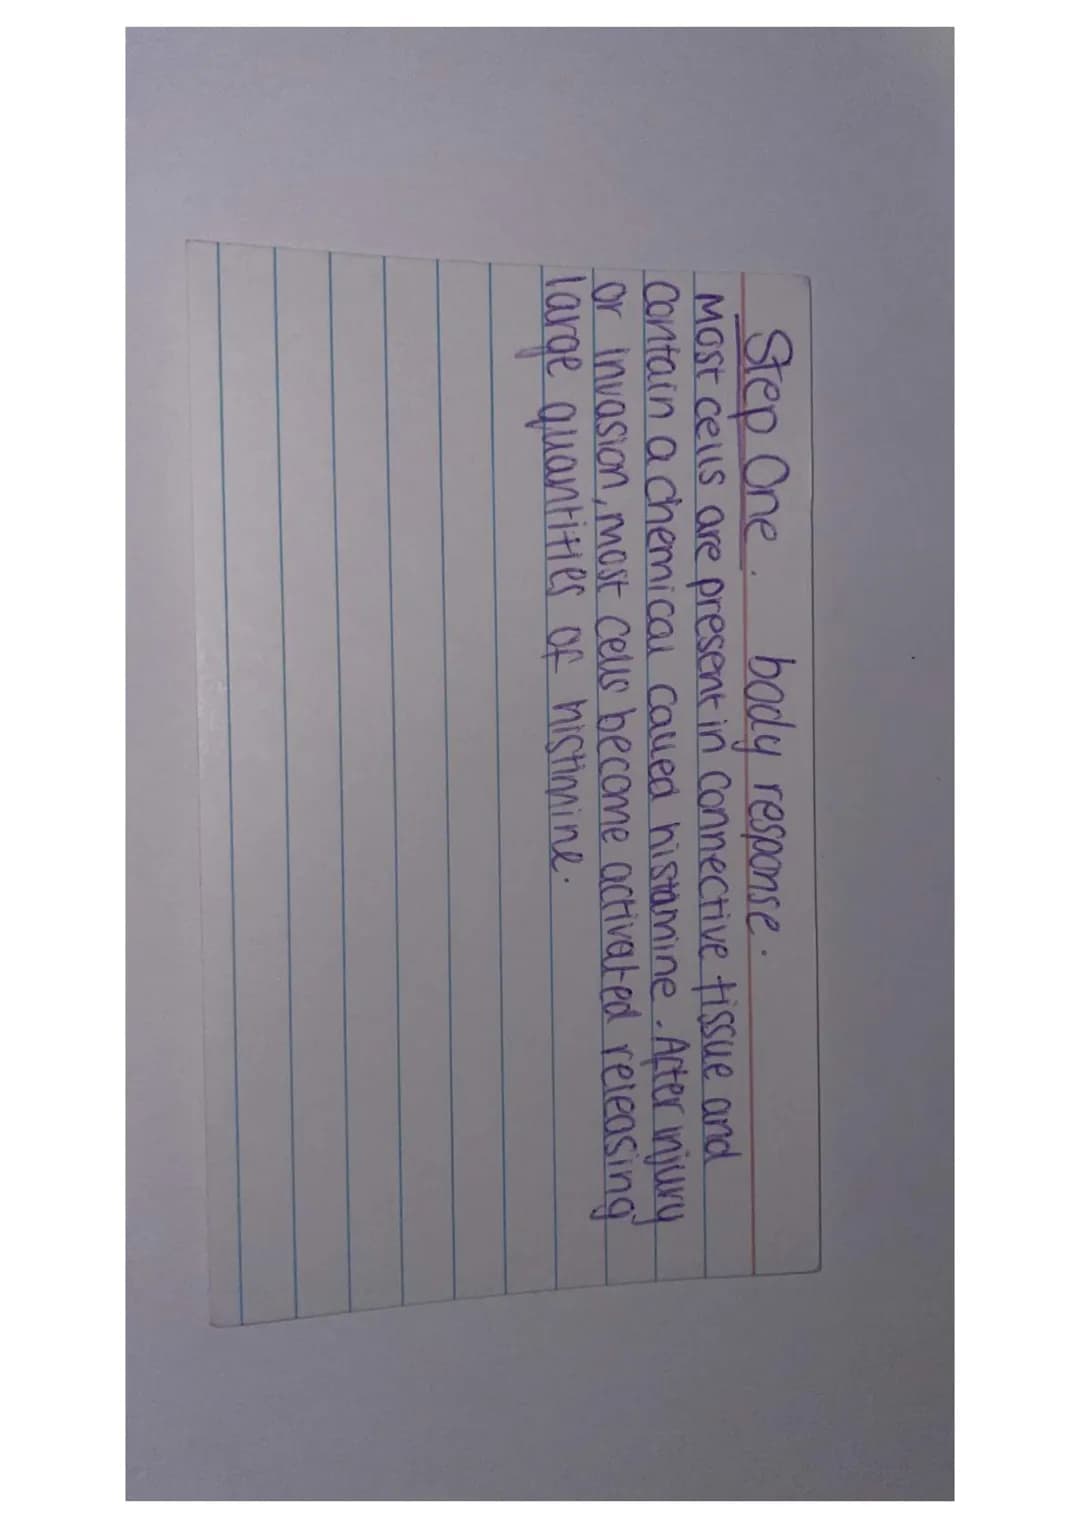 Step One. body response.
Mast cells are present in connective tissue and
contain a chemical called histamine. After injury
or invasion, mast cells become activated releasing
large quantities of histimine.